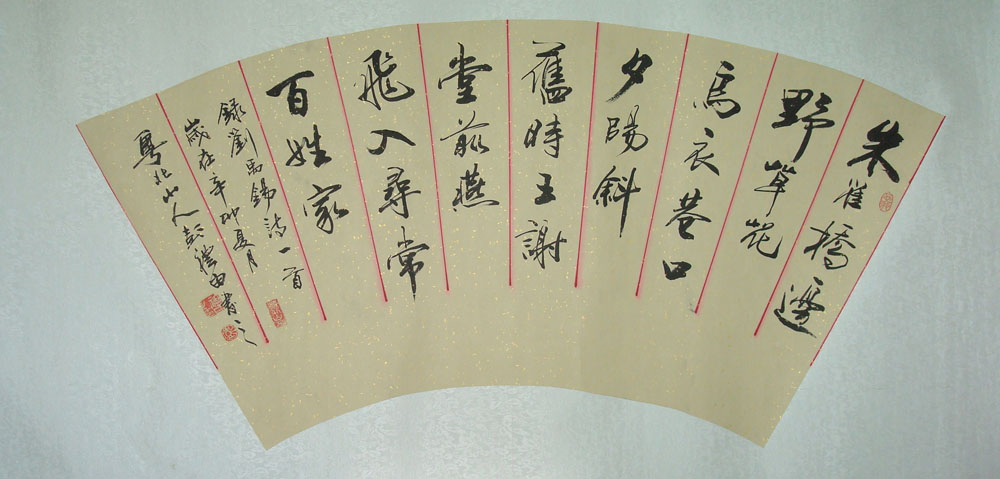 朱雀橋邊
野草花
烏衣巷口
夕陽斜
舊時王謝
堂前燕
飛入尋常
百姓家
錄劉禹錫詩一首
歲在辛卯夏月
粵北山人彭
書之